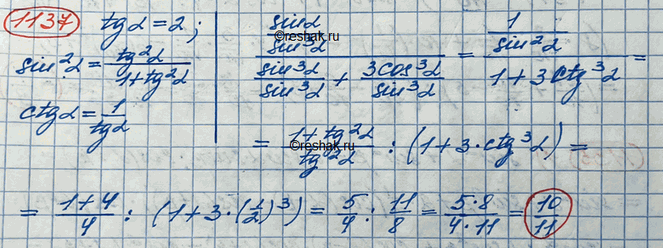 1137 tgα = 2;
sin²α = tg²α / (1+tg²α)
ctgα = 1/tgα
(sinα/sin³α) / (sin³α/sin³α + 3cos³α/sin³α) = (1/sin²α) / (1+3ctg³α) =
©reshak.ru
= (1+tg²α)/tg²α : (1+3·ctg³α) =
= (1+4)/4 : (1+3·(1/2)³) = 5/4 : 11/8 = 5·8/4·11 = 10/11